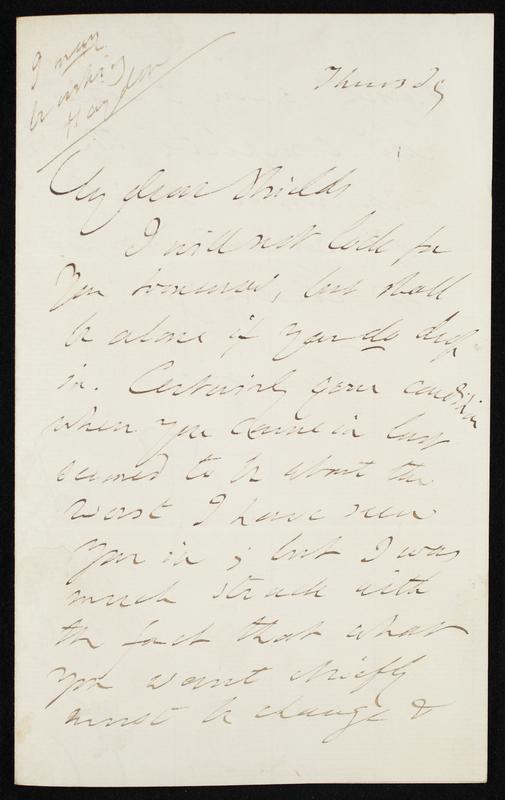 I may
be asking
Haydon
Thursday
My dear Shields
I will not look for
you tomorrow, but shall
be alone if you do drop
in. Certainly your condition
when you came in last
seemed to be about the
worst I have seen
you in; but I was
much struck with
the fact that what
you want chiefly
must be change &